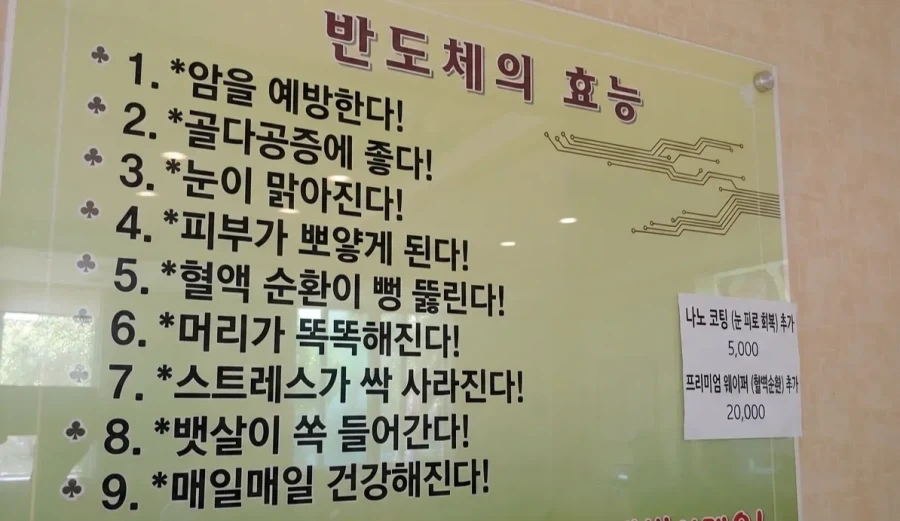 반도체의 효능
1. *암을 예방한다!
2. *골다공증에 좋다!
3. *눈이 맑아진다!
4. *피부가 뽀얗게 된다!
5. *혈액 순환이 뻥 뚫린다!
6. *머리가 똑똑해진다!
7. *스트레스가 싹 사라진다!
8. *뱃살이 쏙 들어간다!
9. *매일매일 건강해진다!
나노 코팅 (눈 피로 회복) 추가
5,000
프리미엄 웨이퍼 (혈벽순환) 추가
20,000